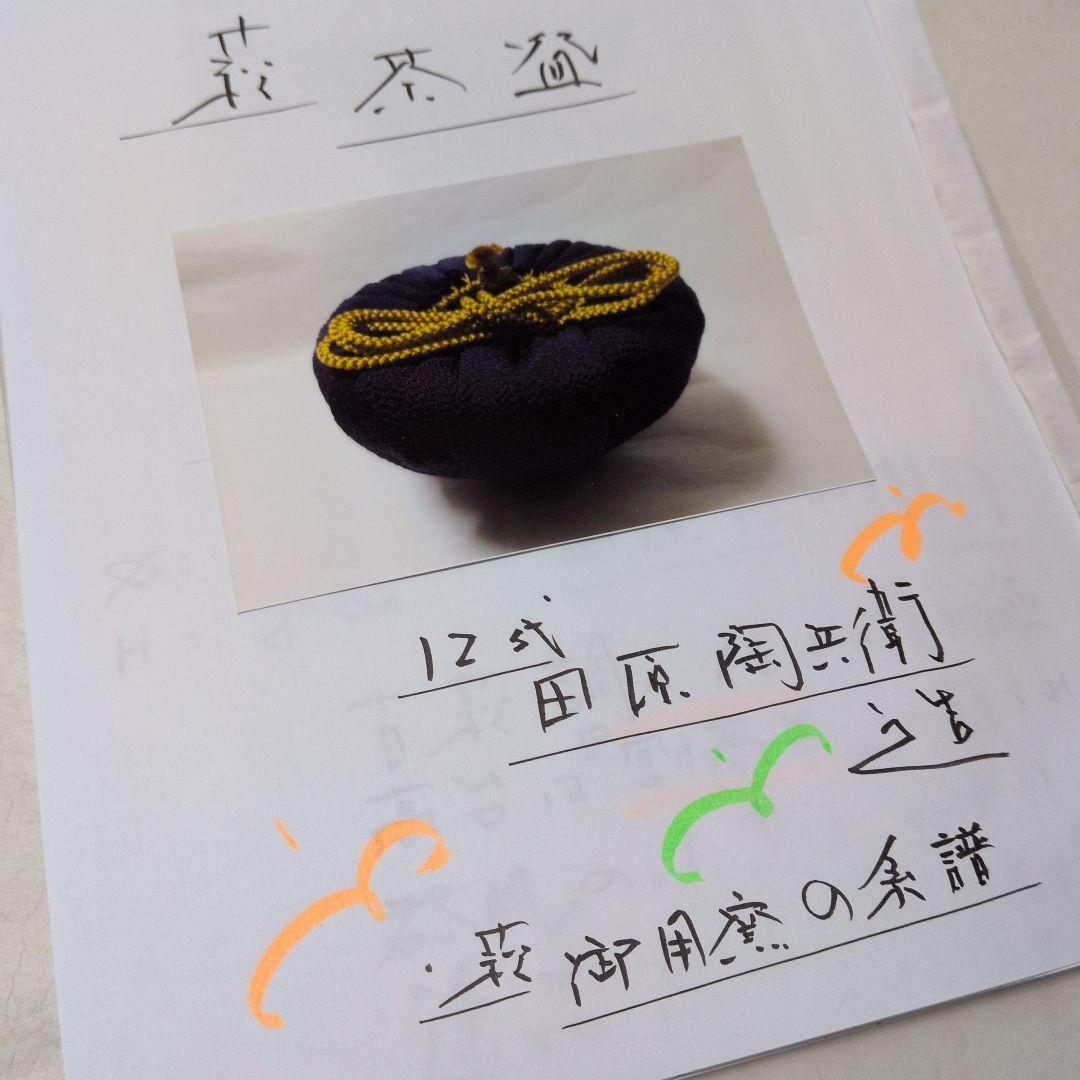 萩 茶盌
12代
田原陶兵衛
造
・萩 御用窯の系譜